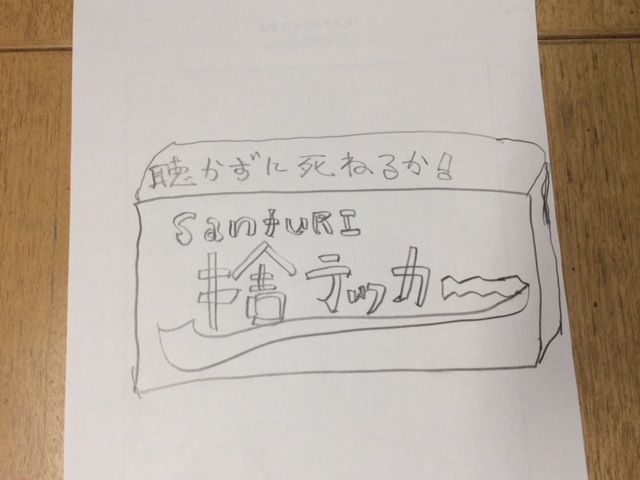 聴かずに死ねるか!
SantuRI
捨テッカー